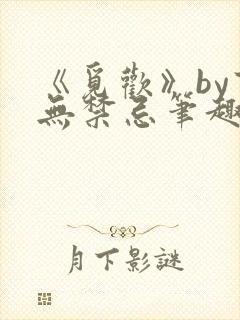 《覓歡》by
無禁忌筆趣
月下影謎